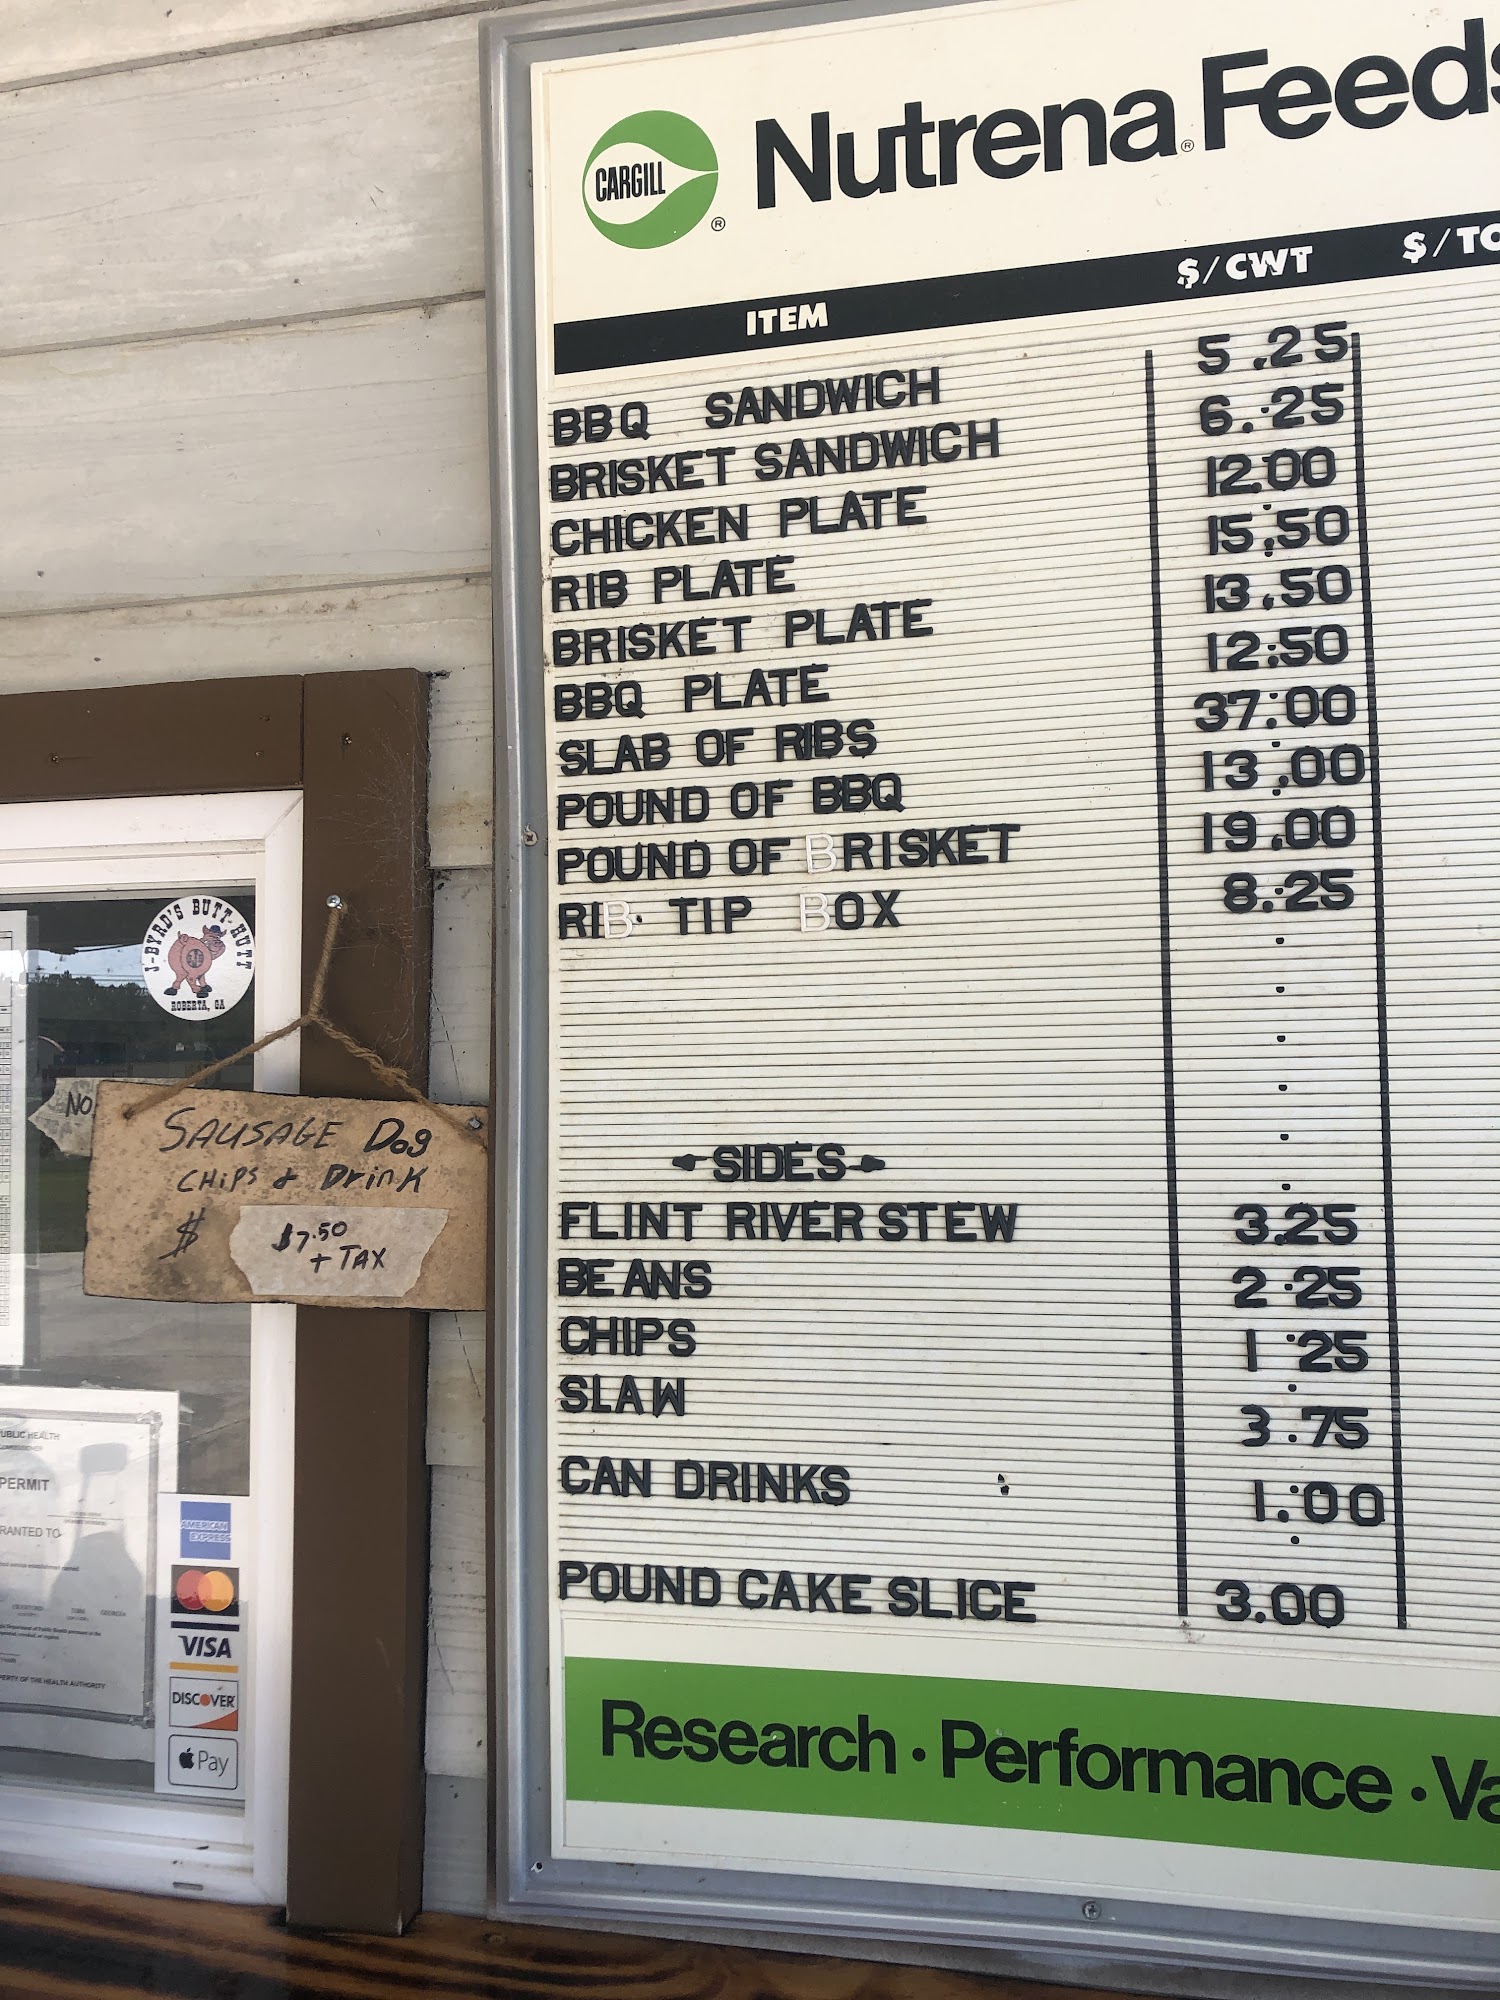 CARGILL
®
Nutrena® Feeds
ITEM $/CWT $/TO
BBQ SANDWICH 5.25
BRISKET SANDWICH 6.25
CHICKEN PLATE 12.00
RIB PLATE 15.50
BRISKET PLATE 13.50
BBQ PLATE 12:50
SLAB OF RIBS 37:00
POUND OF BBQ 13.00
POUND OF BRISKET 19.00
RIB TIP BOX 8:25
SIDES
FLINT RIVER STEW 3.25
BEANS 2.25
CHIPS 1.25
SLAW 3.75
CAN DRINKS 1:00
POUND CAKE SLICE 3.00
Research · Performance · Va
J-BYRD'S BUTT-HUTT
ROBERTA, GA
NO
SAUSAGE Dog
CHIPS & DrinK
$ $7.50
+ TAX
UBLIC HEALTH
PERMIT
RANTED TO
ERTY OF THE HEALTH AUTHORITY
AMERICAN
EXPRESS
VISA
DISCOVER
Pay